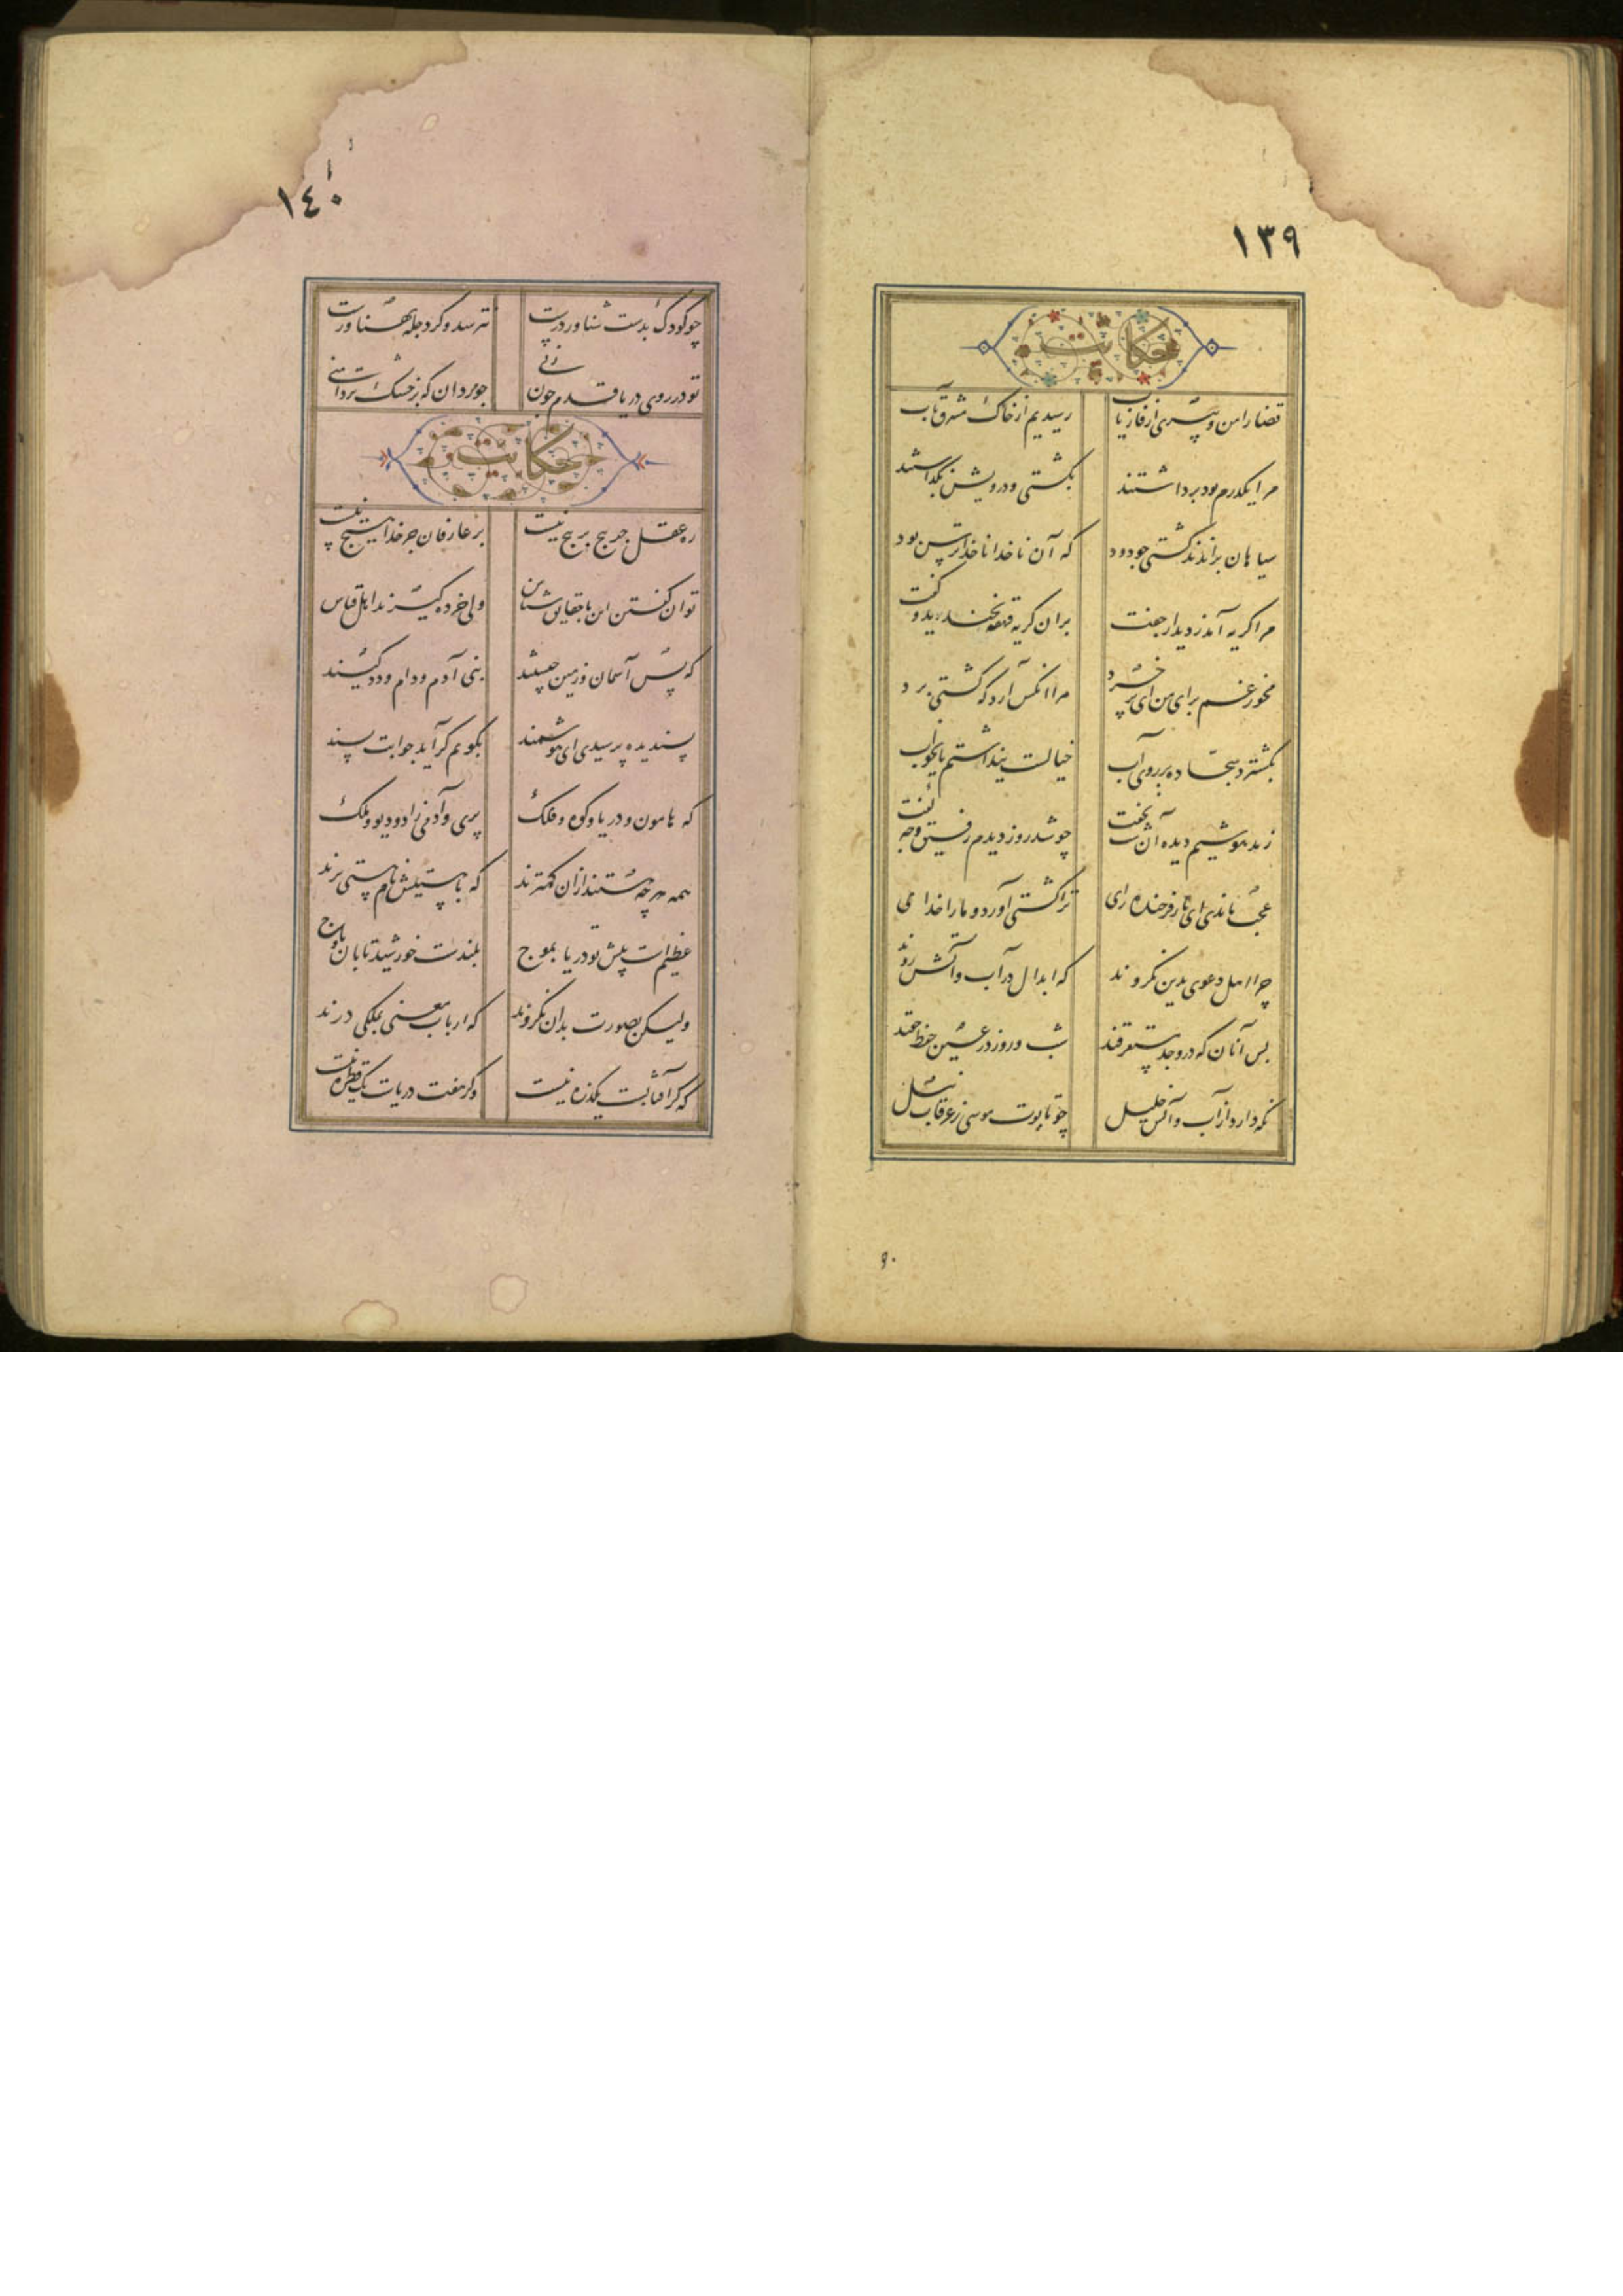 ١٣٩
حکایت
قضا را من و پیری از فاریاب رسیدیم از خاک مشرق باب
مرا یکدرم بود برداشتند بکشتی و درویش بگذاشتند
سیاهان براندند کشتی چو دود که آن ناخدا ناخداترس بود
مرا گریه آمد ز دیدار جفت بران گریه قهقه بخندید و گفت
مخور غم برای من ای پر خرد مرا آنکس آرد که کشتی برد
بگسترد سجاده بر روی آب خیالست پنداشتم یا بخواب
ز مدهوشیم دیده آن شب نخفت چو شد روز دیدم رفیق و چه گفت
عجب ماندی ای یار فرخنده رای ترا کشتی آورد و ما را خدای
چرا اهل دعوی بدین نگروند که ابدال در آب و آتش روند
بس آنان که در وجد مستغرقند شب و روز در عین حفظ حقند
نگه دارد از آب و آتش خلیل چو تابوت موسی ز غرقاب نیل
٩٠
١٤٠
چو کودک بدست شناور درست نترسد وگر دجله پهناورست
تو در روی دریا قدم چون زنی چو مردان که بر خشک تردامنی
حکایت
ره عقل جز پیچ بر پیچ نیست بر عارفان جز خدا هیچ نیست
توان گفتن این با حقایق شناس ولی خرده گیرند اهل قیاس
که پس آسمان و زمین چیستند بنی آدم و دام و دد کیستند
پسندیده پرسیدی ای هوشمند بگویم گر آید جوابت پسند
که هامون و دریا و کوه و فلک پری و آدمی زاد و دیو و ملک
همه هرچه هستند ازان کمترند که با هستیش نام هستی برند
عظیمست پیش تو دریا بموج بلندست خورشید تابان باوج
ولیکن بصورت بدان نگروند که ارباب معنی بملکی درند
که گر آفتابست یکذره نیست وگر هفت دریاست یک قطره نیست